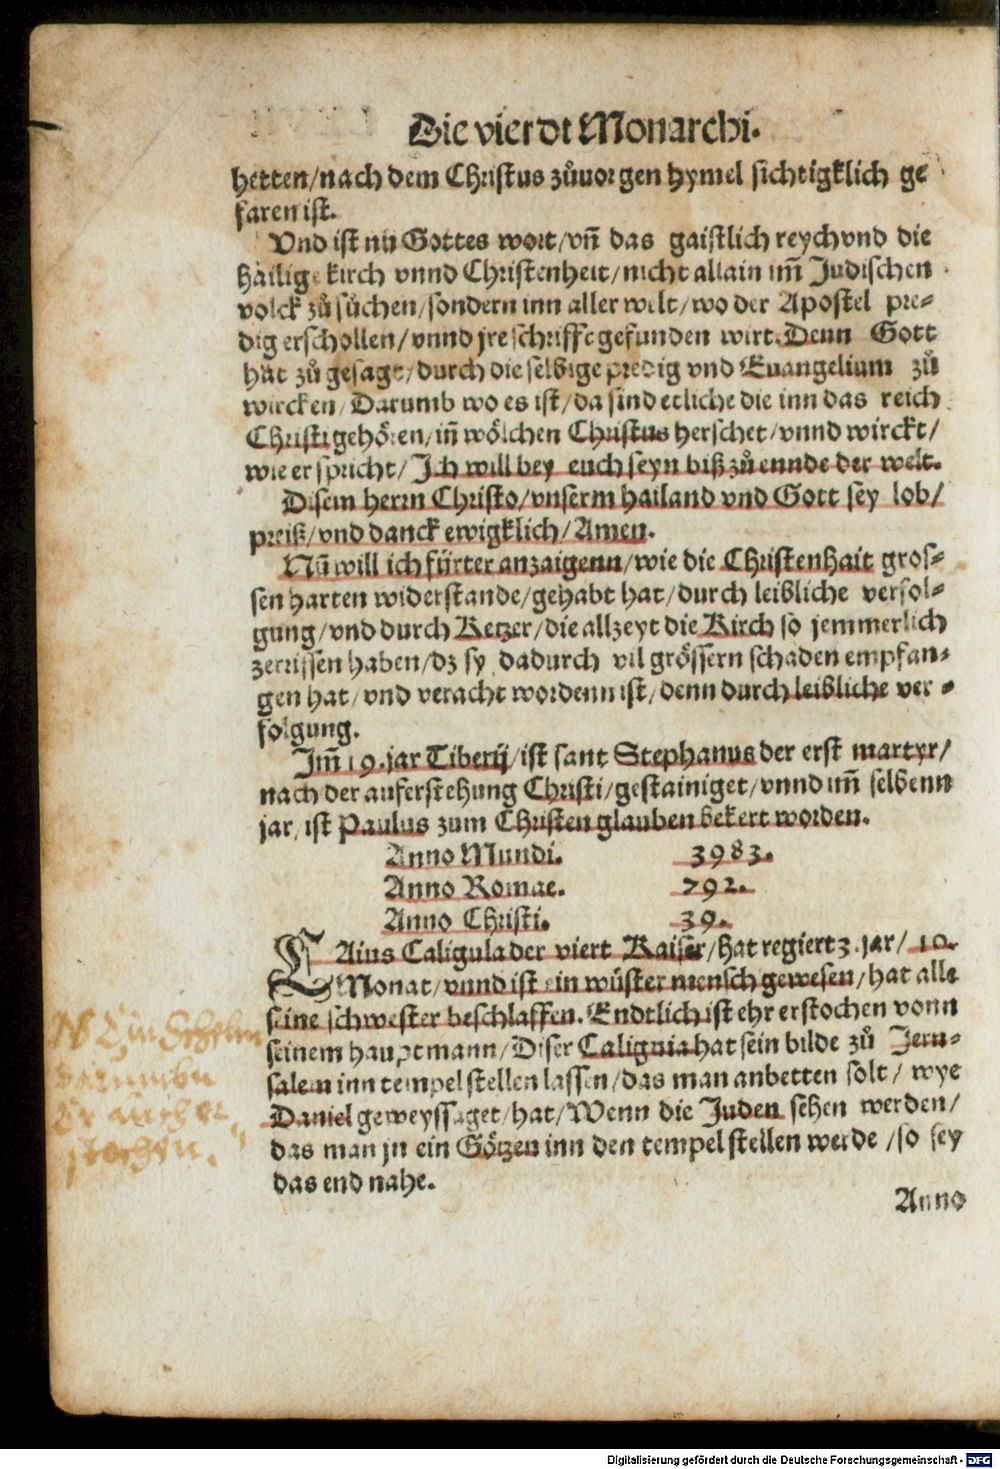 Die vierdt Monarchi.
hetten/nach dem Christus zůuor gen hymel sichtigklich ge
faren ist.
Vnd ist nu Gottes wort/vñ das gaistlich reych vnd die
hailige kirch vnnd Christenheit/nicht allain im̃ Judischen
volck zů sůchen/sondern inn aller welt/wo der Apostel pre-
dig erschollen/vnnd jre schrifft gefunden wirt. Denn Gott
hat zů gesagt/durch die selbige predig vnd Euangelium zů
wircken/Darumb wo es ist/da sind etliche die inn das reich
Christi gehören/iñ wölchen Christus herschet/vnnd wirckt/
wie er spricht/Ich will bey euch seyn biß zů ennde der welt.
Disem herrn Christo/vnserm hailand vnd Gott sey lob/
preiß/vnd danck ewigklich/Amen.
Nũ will ich fürter anzaigenn/wie die Christenhait gros-
sen harten widerstande/gehabt hat/durch leibliche verfol-
gung/vnd durch Ketzer/die allzeyt die Kirch so jemmerlich
zerrissen haben/dz sy dadurch vil grössern schaden empfan-
gen hat/vnd veracht wordenn ist/denn durch leibliche ver-
folgung.
Im̃ 19. jar Tiberij/ist sant Stephanus der erst martyr/
nach der auferstehung Christi/gestainiget/vnnd im̃ selbenn
jar/ist Paulus zum Christen glauben bekert worden.
Anno Mundi. 3983.
Anno Romae. 792.
Anno Christi. 39.
CAius Caligula der viert Kaiser/hat regiert 3. jar/10.
Monat/vnnd ist ein wüster mensch gewesen/hat alle
seine schwester beschlaffen. Endtlich ist ehr erstochen vonn
seinem hauptmann/Diser Caligula hat sein bilde zů Jeru-
salem inn tempel stellen lassen/das man anbetten solt/wye
Daniel geweyssaget/hat/Wenn die Juden sehen werden/
das man jn ein Götzen inn den tempel stellen werde/so sey
das end nahe.
Anno
Digitalisierung gefördert durch die Deutsche Forschungsgemeinschaft - DFG